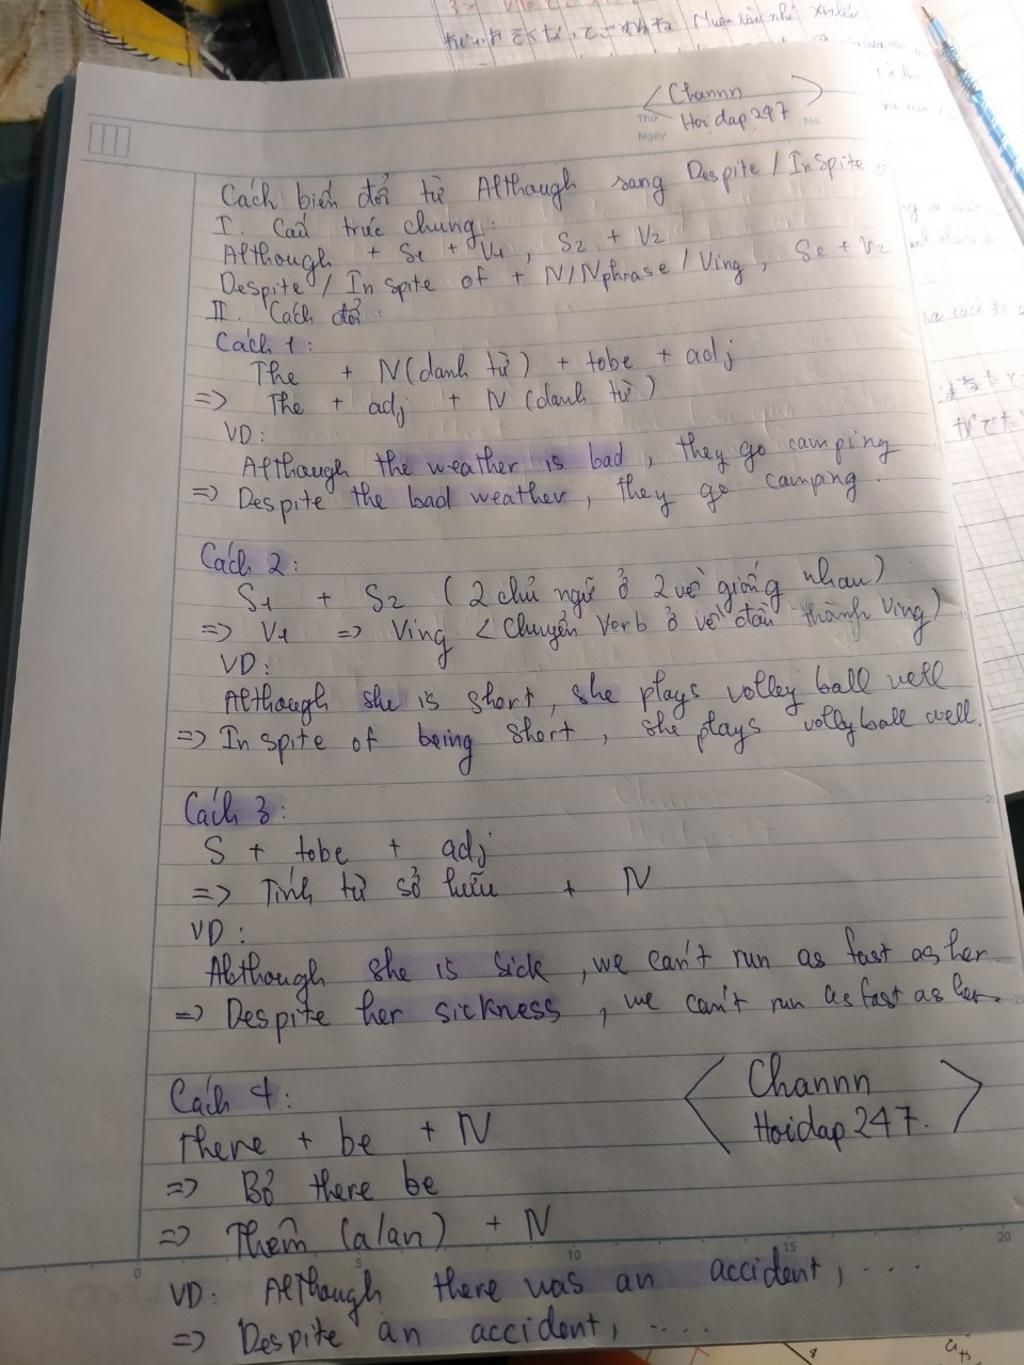 < Channn >
Thứ
Ngày
No.
Hoidap247
Cách biến đổi từ Although sang Despite / In spite
I. Cấu trúc chung:
Although + S1 + V1, S2 + V2
Despite / In spite of + N/Nphrase / Ving, S2 + V2
II. Cách đổi:
Cách 1:
The + N (danh từ) + tobe + adj
=> The + adj + N (danh từ)
VD:
Although the weather is bad, they go camping
=> Despite the bad weather, they go camping.
Cách 2:
S1 + S2 (2 chủ ngữ ở 2 vế giống nhau)
=> V1 => Ving < Chuyển Verb ở vế đầu thành Ving)
VD:
Although she is short, she plays volley ball well
=> In spite of being short, she plays volleyball well.
Cách 3:
S + tobe + adj
=> Tính từ sở hữu + N
VD:
Although she is sick, we can't run as fast as her.
=> Despite her sickness, we can't run as fast as her.
Cách 4:
There + be + N
=> Bỏ there be
=> Thêm (a/an) + N
< Channn >
Hoidap247.
VD: Although there was an accident, ....
=> Despite an accident, ....